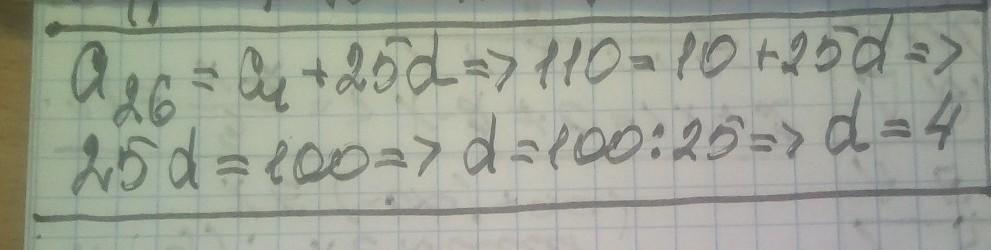 a₂₆ = a₁ + 25d => 110 = 10 + 25d =>
25d = 100 => d = 100 : 25 => d = 4